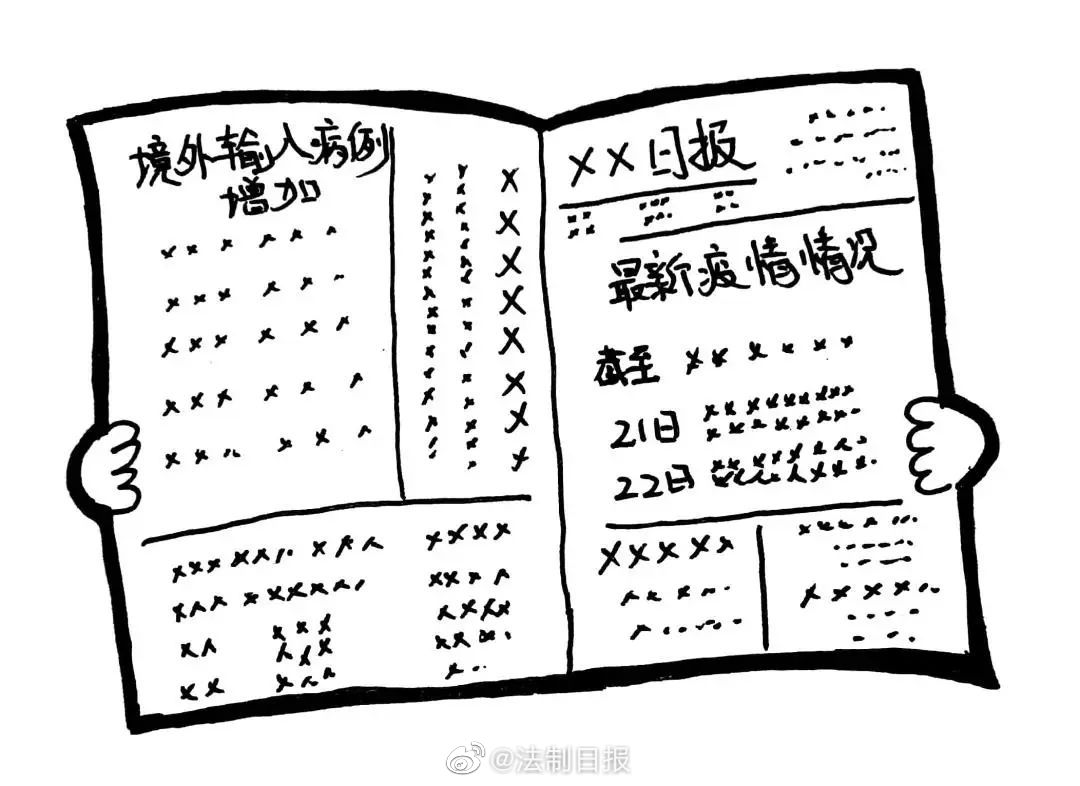 境外输入病例
增加
XX日报
最新疫情情况
截至
21日
22日
@法制日报